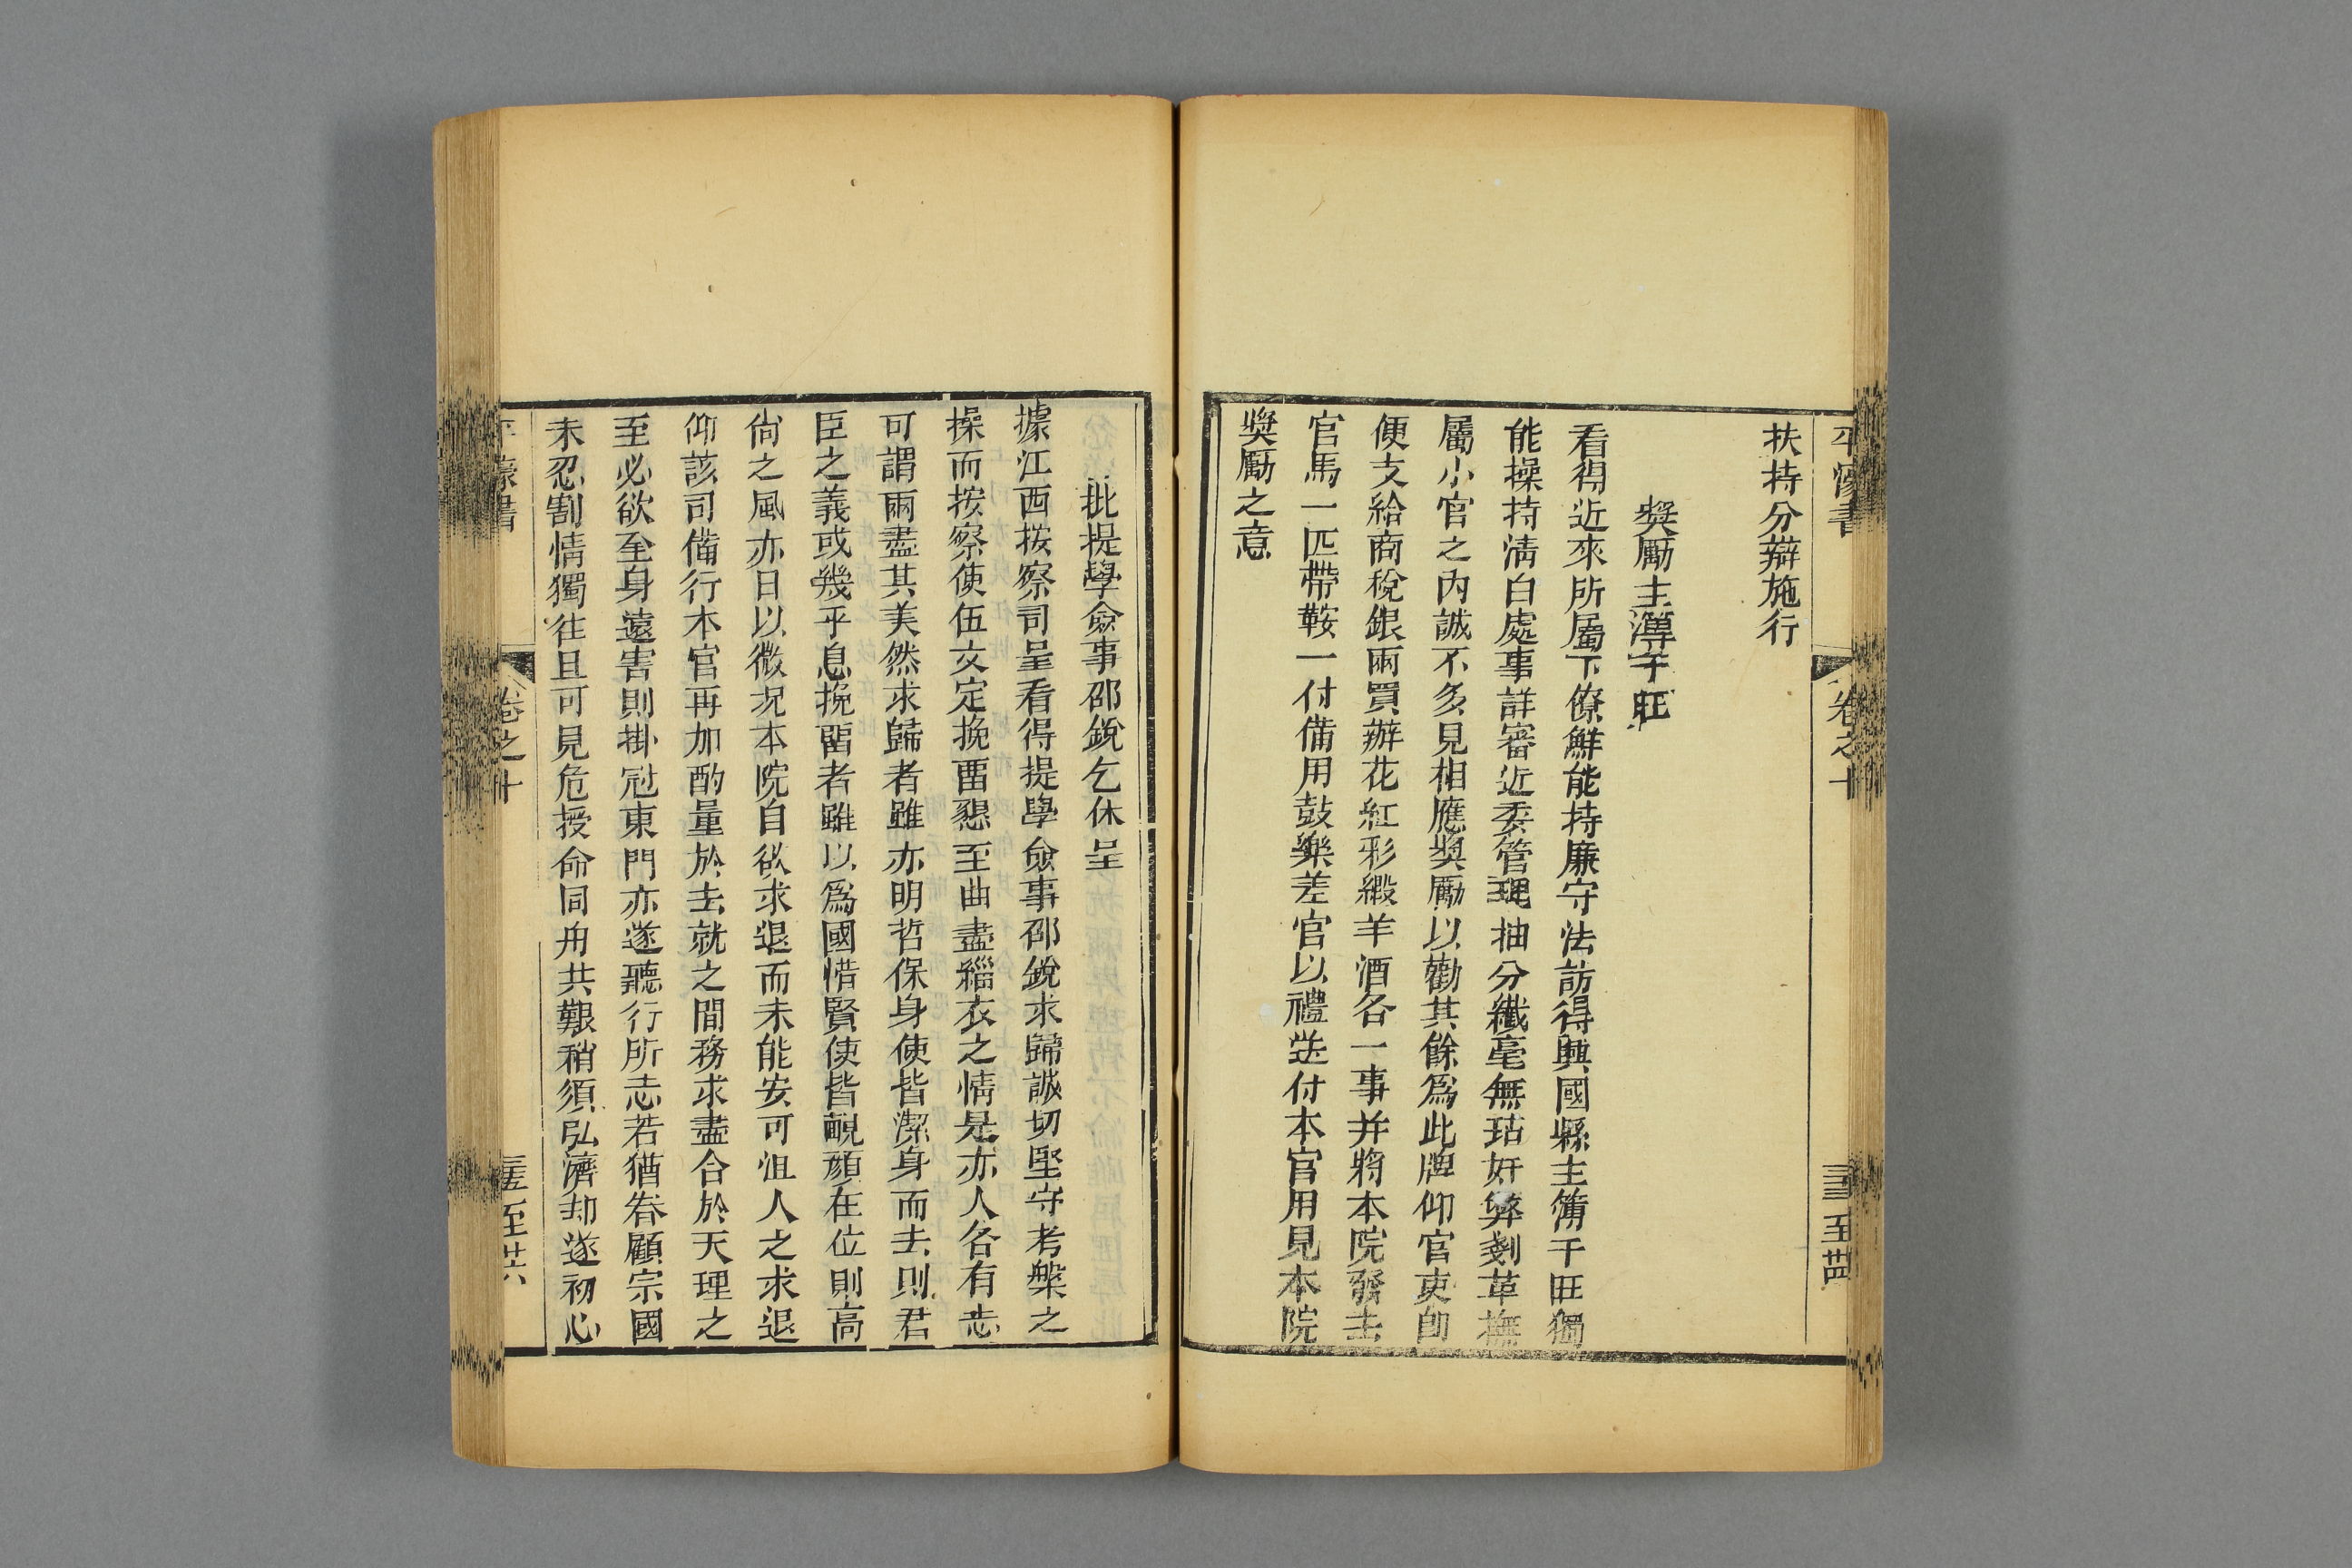 平濠書　卷之十　三十三至卅四
扶持分辯施行
獎勵主簿于旺
看得近來所屬下僚鮮能持廉守法訪得興國縣主簿于旺獨
能操持淸白處事詳審近委管理抽分纖毫無玷奸弊剗革撫
屬小官之內誠不多見相應獎勵以勸其餘爲此牌仰官吏卽
便支給商稅銀兩買辦花紅彩緞羊酒各一事并將本院發去
官馬一匹帶鞍一付備用鼓樂差官以禮送付本官用見本院
獎勵之意
批提學僉事邵銳乞休呈
據江西按察司呈看得提學僉事邵銳求歸誠切堅守考槃之
操而按察使伍文定挽畱懇至曲盡緇衣之情是亦人各有志
可謂兩盡其美然求歸者雖亦明哲保身使皆潔身而去則君
臣之義或幾乎息挽畱者雖以爲國惜賢使皆靦顔在位則高
尙之風亦日以微況本院自欲求退而未能安可沮人之求退
仰該司備行本官再加酌量於去就之間務求盡合於天理之
至必欲至身遠害則掛冠東門亦遂聽行所志若猶眷顧宗國
未忍割情獨往且可見危授命同舟共艱稍須弘濟却遂初心
平濠書　卷之十　至卅六